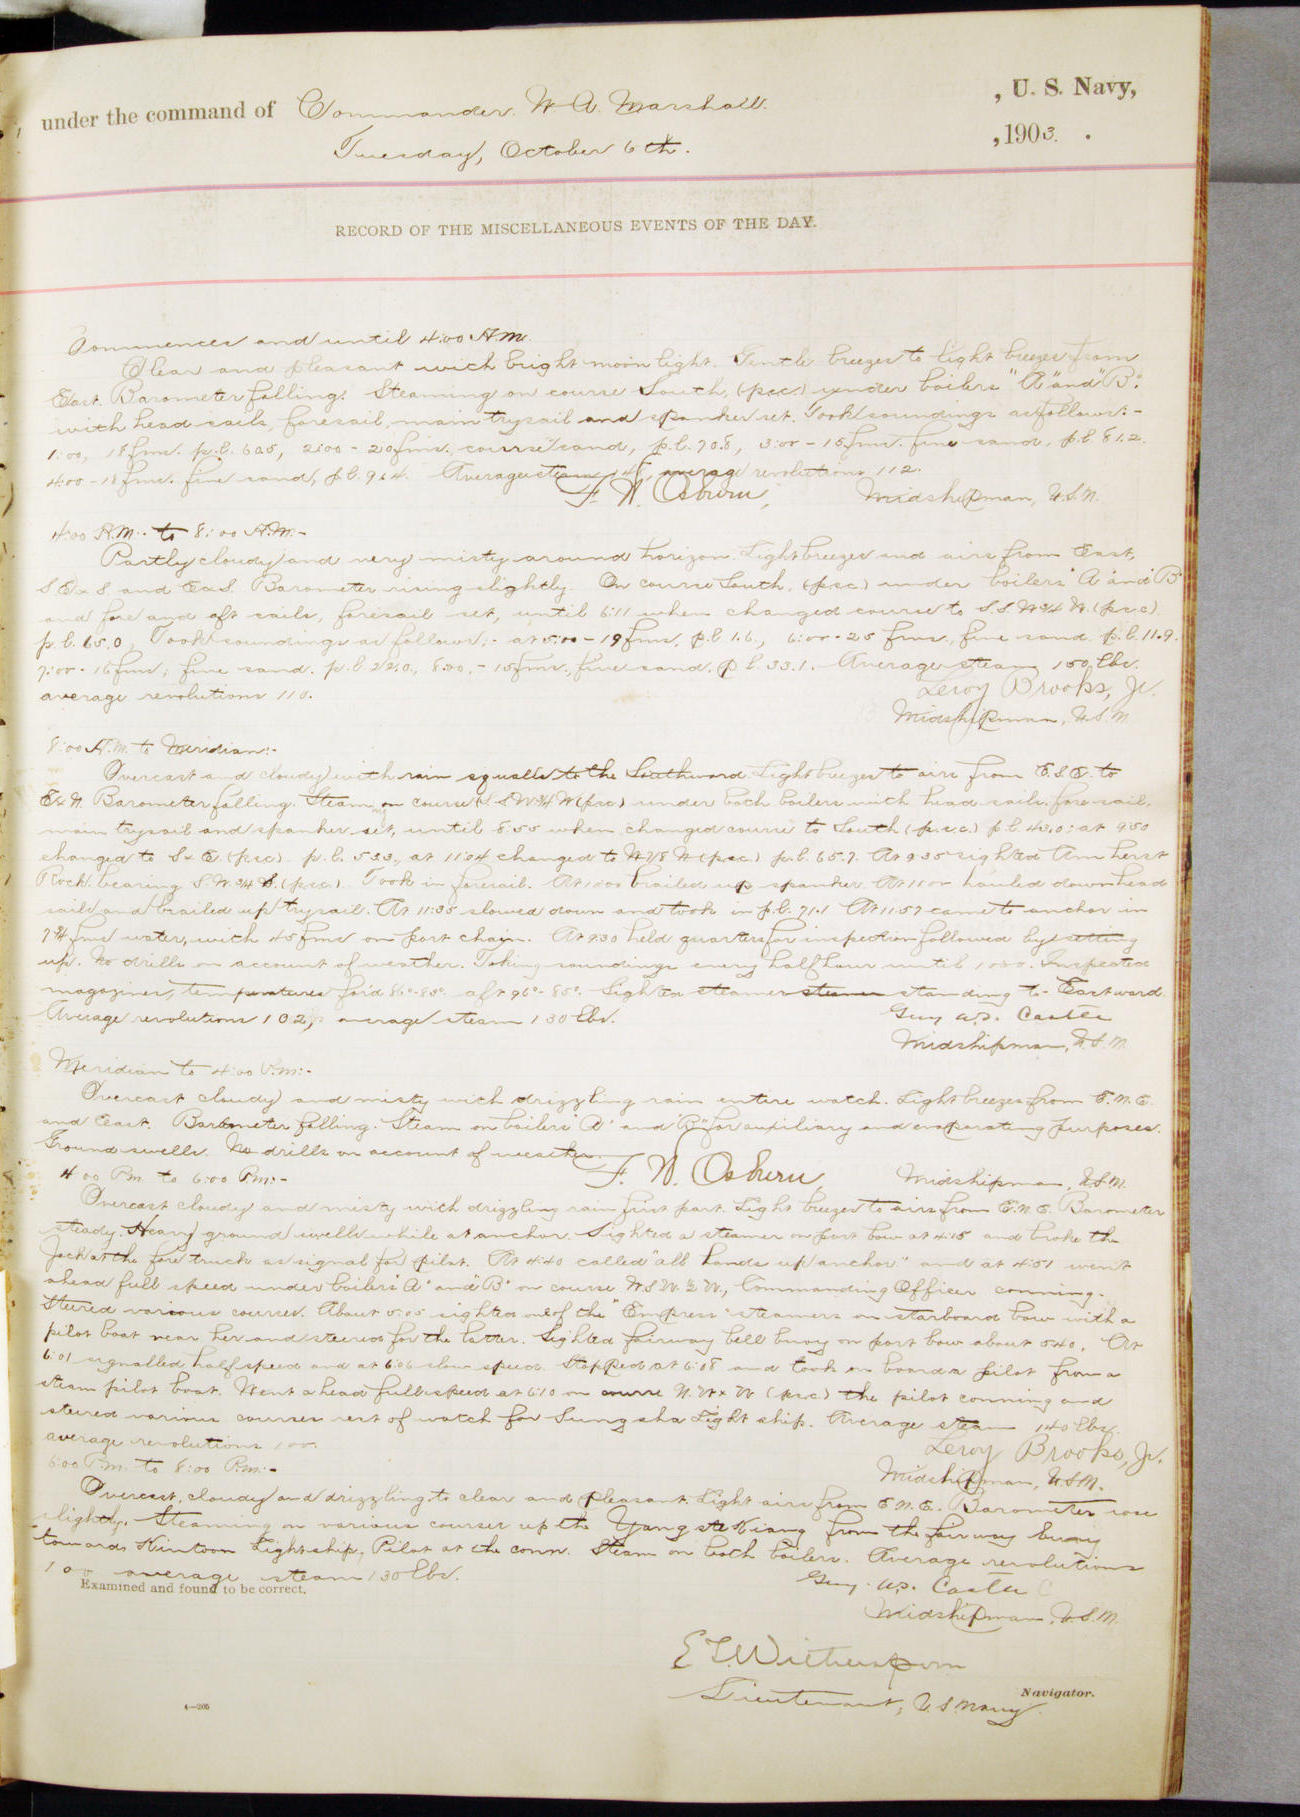 under the command of Commander W. A. Marshall. , U. S. Navy,
Tuesday, October 6th. , 1903 .
RECORD OF THE MISCELLANEOUS EVENTS OF THE DAY.
Commences and until 4:00 A.M.
Clear and pleasant with bright moon light. Gentle breezes to light breezes from
East. Barometer falling. Steaming on course South, (p.s.c.) under boilers "A" and "B"
with head sails, foresail, main trysail and spanker set. Took soundings as follows:-
1:00, 18 fms. p.l. 60.5, 2:00 - 20 fms. course sand, p.l. 70.8, 3:00 - 15 fms. fine sand, p.l. 81.2.
4:00 - 18 fms. fine sand, p.l. 96.4. Average steam 145, average revolutions 112.
F. W. Osburn, Midshipman, U.S.N.
4:00 A.M. to 8:00 A.M.-
Partly cloudy and very misty around horizon. Light breezes and airs from East,
S E x S. and E x S. Barometer rising slightly. On course South, (p.s.c.) under boilers "A" and "B"
and fore and aft sails, foresail set, until 6:11 when changed course to S.S.W. 3/4 W. (p.s.c.)
p.l. 65.0, Took soundings as follows:- at 5:00 - 19 fms, p.l. 1.6., 6:00 - 25 fms, fine sand p.l. 11.9.
7:00 - 16 fms, fine sand. p.l. 22.0, 8:00, - 15 fms, fine sand, p.l. 33.1. Average steam 150 lbs.
average revolutions 110. Leroy Brooks, Jr.
Midshipman, U.S.N.
8:00 A.M. to Meridian:-
Overcast and cloudy with rain squalls to the Southward. Light breezes to airs from E.S.E. to
E x N. Barometer falling. Steam on course S.S.W. 3/4 W (psc) under both boilers with head sails, foresail,
main trysail and spanker set, until 8:55 when changed course to South (p.s.c.) p.l. 43.0; at 9:50
changed to S x E. (psc) p.l. 53.3, at 11:04 changed to W 7/8 N (psc.) p.l. 65.7. At 9:35 sighted Amherst
Rock bearing S.W. 3/4 S. (psc.) Took in foresail. At 10:00 brailed up spanker. At 11:00 hauled down head
sails and brailed up trysail. At 11:35 slowed down and took in p.l. 71.1 At 11:57 came to anchor in
7 3/4 fms water, with 45 fms on port chain. At 9:30 held quarters for inspection followed by setting
up. No drills on account of weather. Taking soundings every half hour until 10:00. Inspected
magazines, temperatures for'd 86°-85°. aft 96°-85°. Sighted steamer standing to Eastward.
Average revolutions 102, average steam 130 lbs. Guy W.S. Castle
Midshipman, U.S.N.
Meridian to 4:00 P.M:-
Overcast cloudy and misty with drizzling rain entire watch. Light breezes from E.N.E.
and East. Barometer falling. Steam on boilers "A" and "B" for auxiliary and evaporating purposes.
Ground swells. No drills on account of weather. F. W. Osburn, Midshipman, U.S.N.
4:00 P.M. to 6:00 P.M:-
Overcast cloudy and misty with drizzling rain first part. Light breezes to airs from E.N.E. Barometer
steady. Heavy ground swells while at anchor. Sighted a steamer on port bow at 4:15 and broke the
Jack at the fore truck as signal for pilot. At 4:40 called "all hands up anchor" and at 4:51 went
ahead full speed under boilers "A" and "B" on course W.S.W. 1/2 W., Commanding Officer conning.
Steered various courses. About 5:05 sighted one of the "Empress" steamers on starboard bow with a
pilot boat near her and steered for the latter. Sighted fairway bell buoy on port bow about 5:40. At
6:01 signalled half speed and at 6:06 slow speed. Stopped at 6:08 and took on board a pilot from a
steam pilot boat. Went ahead full speed at 6:10 on course N.W. x W (psc) the pilot conning and
steered various courses rest of watch for Tungsha Light ship. Average steam 140 lbs.
average revolutions 100. Leroy Brooks, Jr.
6:00 P.M. to 8:00 P.M:- Midshipman, U.S.N.
Overcast, cloudy and drizzling to clear and pleasant. Light airs from E.N.E. Barometer rose
slightly. Steaming on various courses up the Yang tse Kiang from the fairway buoy
towards Kintoon Lightship, Pilot at the conn. Steam on both boilers. Average revolutions
100 average steam 130 lbs. Guy W.S. Castle
Examined and found to be correct.
Midshipman, U.S.N.
E T Witherspoon
Lieutenant, U.S. Navy Navigator.
4—205